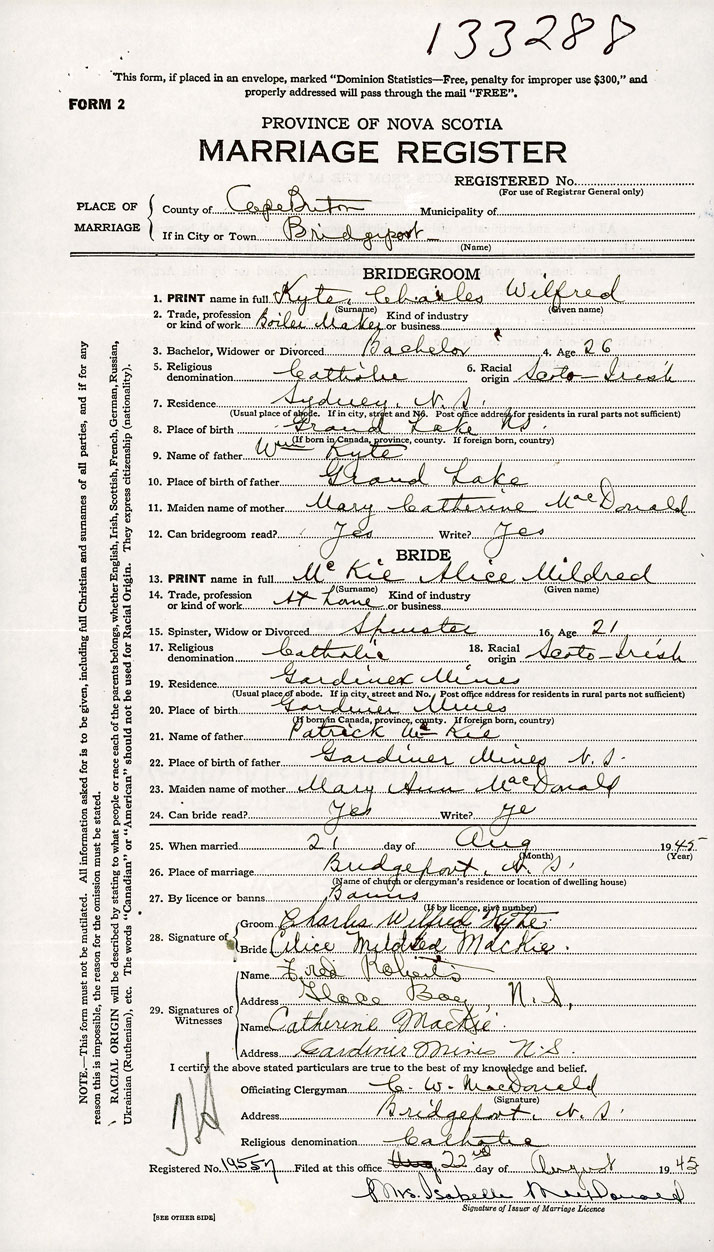 133288
"This form, if placed in an envelope, marked "Dominion Statistics—Free, penalty for improper use $300," and
properly addressed will pass through the mail "FREE".
FORM 2
PROVINCE OF NOVA SCOTIA
MARRIAGE REGISTER
REGISTERED No.
(For use of Registrar General only)
PLACE OF MARRIAGE
County of Cape Breton Municipality of
If in City or Town Bridgeport
(Name)
BRIDEGROOM
1. PRINT name in full Kyte, Charles Wilfred
(Surname) (Given name)
2. Trade, profession or kind of work Boiler Maker Kind of industry or business
3. Bachelor, Widower or Divorced Bachelor 4. Age 26
5. Religious denomination Catholic 6. Racial origin Scoto-Irish
7. Residence Sydney, N.S.
(Usual place of abode. If in city, street and No. Post office address for residents in rural parts not sufficient)
8. Place of birth Grand Lake NS.
(If born in Canada, province, county. If foreign born, country)
9. Name of father Wm Kyte
10. Place of birth of father Grand Lake
11. Maiden name of mother Mary Catherine MacDonald
12. Can bridegroom read? Yes Write? Yes
BRIDE
13. PRINT name in full McKie Alice Mildred
(Surname) (Given name)
14. Trade, profession or kind of work At home Kind of industry or business
15. Spinster, Widow or Divorced Spinster 16. Age 21
17. Religious denomination Catholic 18. Racial origin Scoto-Irish
19. Residence Gardiner Mines
(Usual place of abode. If in city, street and No. Post office address for residents in rural parts not sufficient)
20. Place of birth Gardiner Mines
(If born in Canada, province, county. If foreign born, country)
21. Name of father Patrick McKie
22. Place of birth of father Gardiner Mines N.S.
23. Maiden name of mother Mary Ann MacDonald
24. Can bride read? Yes Write? Ye
25. When married 21 day of Aug 1945
(Month) (Year)
26. Place of marriage Bridgeport, N.S.
(Name of church or clergyman's residence or location of dwelling house)
27. By licence or banns Banns
(If by licence, give number)
28. Signature of
Groom Charles Wilfred Kyte.
Bride Alice Mildred MacKie.
29. Signatures of Witnesses
Name Fred Roberts
Address Glace Bay, N.S,
Name Catherine MacKie.
Address Gardiner Mines N.S.
I certify the above stated particulars are true to the best of my knowledge and belief.
Officiating Clergyman C. W. MacDonald
(Signature)
Address Bridgeport, N.S.
Religious denomination Catholic
Registered No. 19557 Filed at this office 22nd day of August 1945
Mrs. Isabelle MacDonald
Signature of Issuer of Marriage Licence
[SEE OTHER SIDE]
NOTE.—This form must not be mutilated. All information asked for is to be given, including full Christian and surnames of all parties, and if for any
reason this is impossible, the reason for the omission must be stated.
RACIAL ORIGIN will be described by stating to what people or race each of the parents belongs, whether English, Irish, Scottish, French, German, Russian,
Ukrainian (Ruthenian), etc. The words "Canadian" or "American" should not be used for Racial Origin. They express citizenship (nationality).